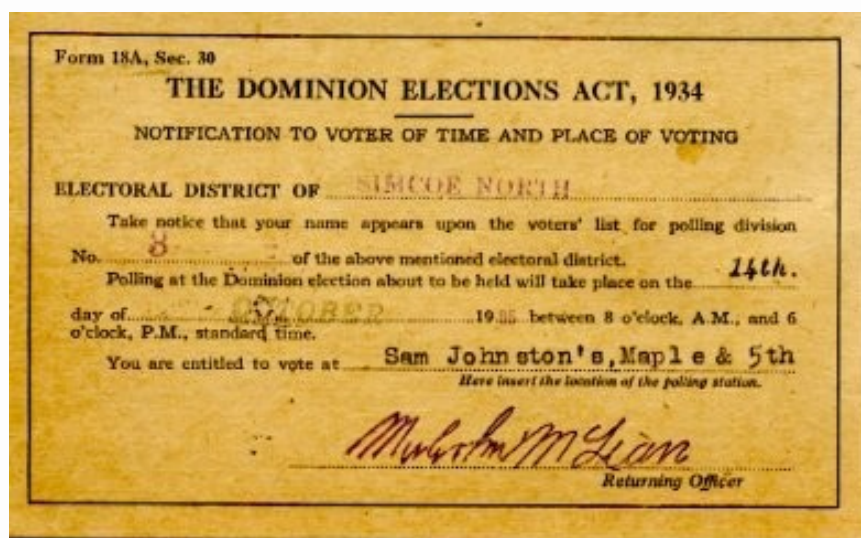 Form 18A, Sec. 30
THE DOMINION ELECTIONS ACT, 1934
NOTIFICATION TO VOTER OF TIME AND PLACE OF VOTING
ELECTORAL DISTRICT OF SIMCOE NORTH
Take notice that your name appears upon the voters' list for polling division
No. 8 of the above mentioned electoral district.
Polling at the Dominion election about to be held will take place on the 14th.
day of OCTOBER 1935 between 8 o'clock, A.M., and 6
o'clock, P.M., standard time.
You are entitled to vote at Sam Johnston's, Maple & 5th
Here insert the location of the polling station.
Malcolm
Returning Officer